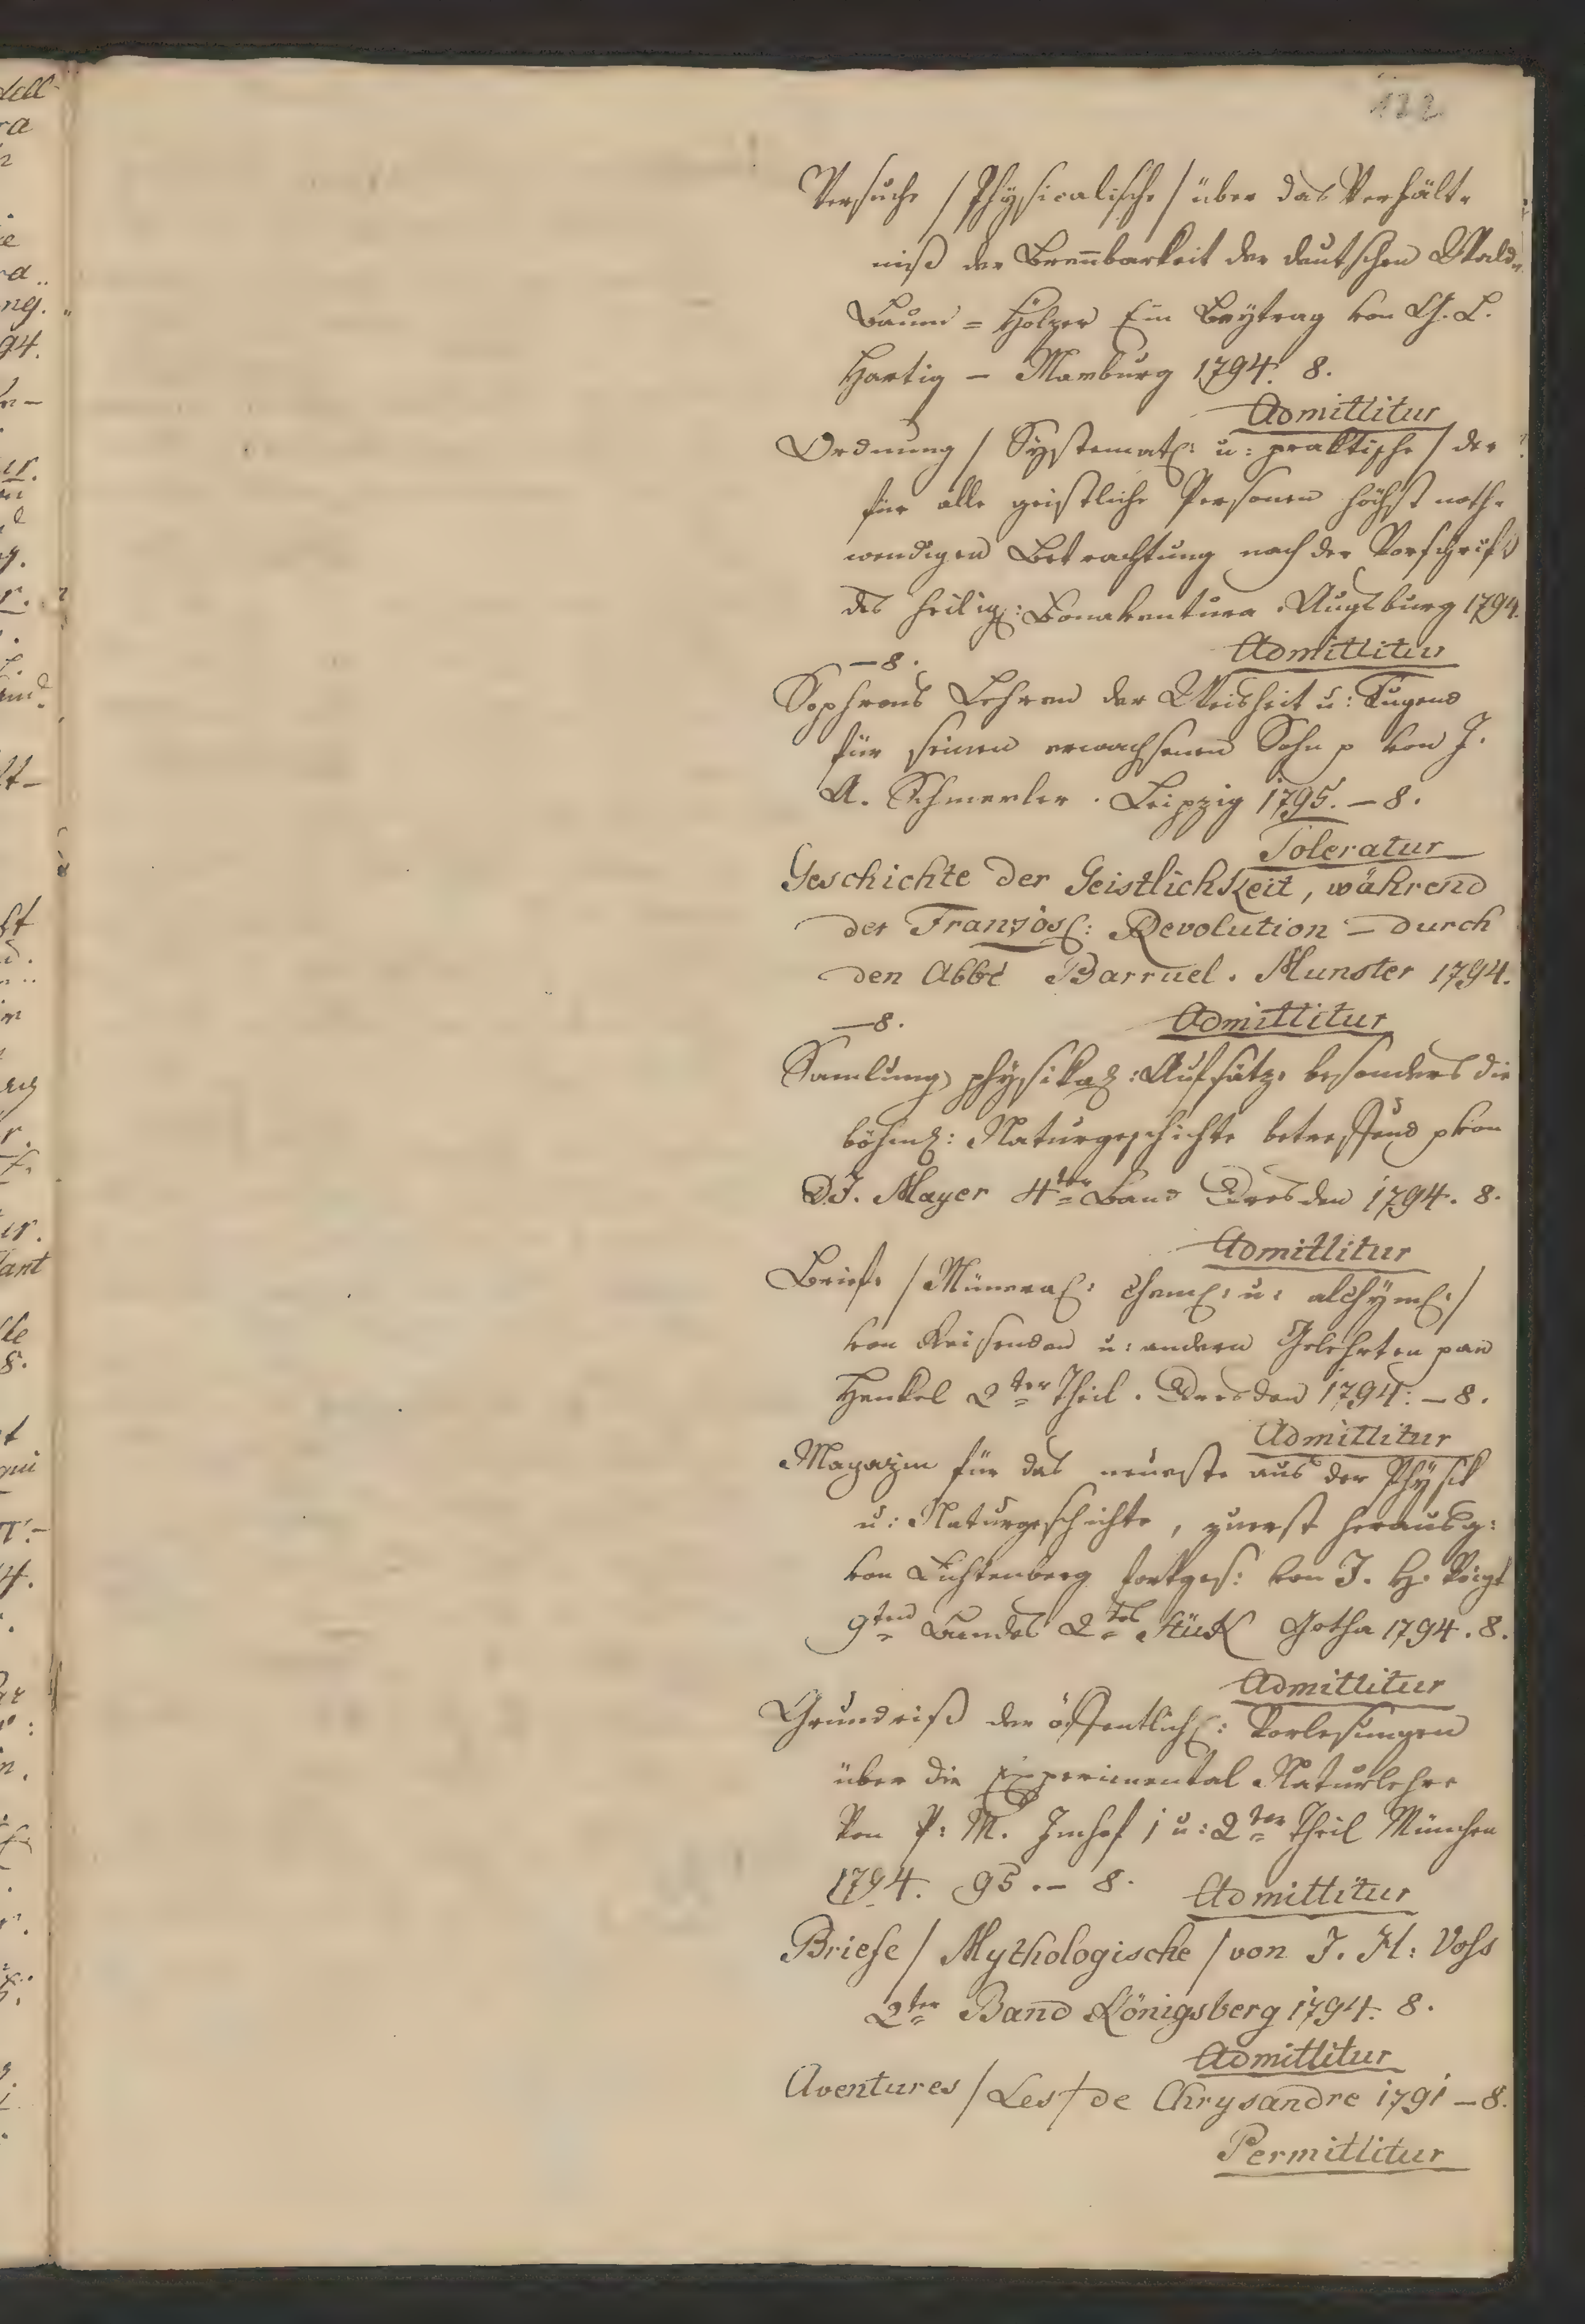 122
Versuche / Physicalische / über das Verhält-
niß der Brennbarkeit der deutschen Wald-
Baum = Hölzer Ein Beytrag von G. L.
Hartig – Marburg 1794. 8.
Admittitur
Ordnung / Systemat: u: praktische / der
für alle geistliche Personen höchst noth-
wendigen Betrachtung nach der Vorschrift
des heilig: Bonaventura. Augsburg 1794.
– 8. Admittitur
Sophrons Lehren der Weisheit u: Tugend
für seinen erwachsenen Sohn p von J.
A. Schmerler. Leipzig 1795. – 8.
Toleratur
Geschichte der Geistlichkeit, während
der Französ: Revolution – durch
den Abbé Barruel. Munster 1794.
– 8. Admittitur
Samlung physikal: Aufsätze besonders die
böhm: Naturgeschichte betreffend p von
D. J. Mayer 4ter Band Dresden 1794. 8.
Admittitur
Briefe / Minera: chem: u: alchym: /
von Reisenden u: andern Gelehrten p an
Henkel 2ter Theil. Dresden 1794: – 8.
Admittitur
Magazin für das neueste aus der Physik
u: Naturgeschichte, zuerst herausg:
von Lichtenberg fortges: von J. H. Voigt
9ten Bandes 2tes Stück Gotha 1794. 8.
Admittitur
Grundriß der öffentlich: Vorlesungen
über die Experimental Naturlehre
Von P: M. Imhof 1 u: 2ter Theil München
1794. 95. – 8. Admittitur
Briefe / Mythologische / von J. H: Voſs
2ter Band Königsberg 1794. 8.
Admittitur
Aventures / Les / de Chrysandre 1791 – 8.
Permittitur